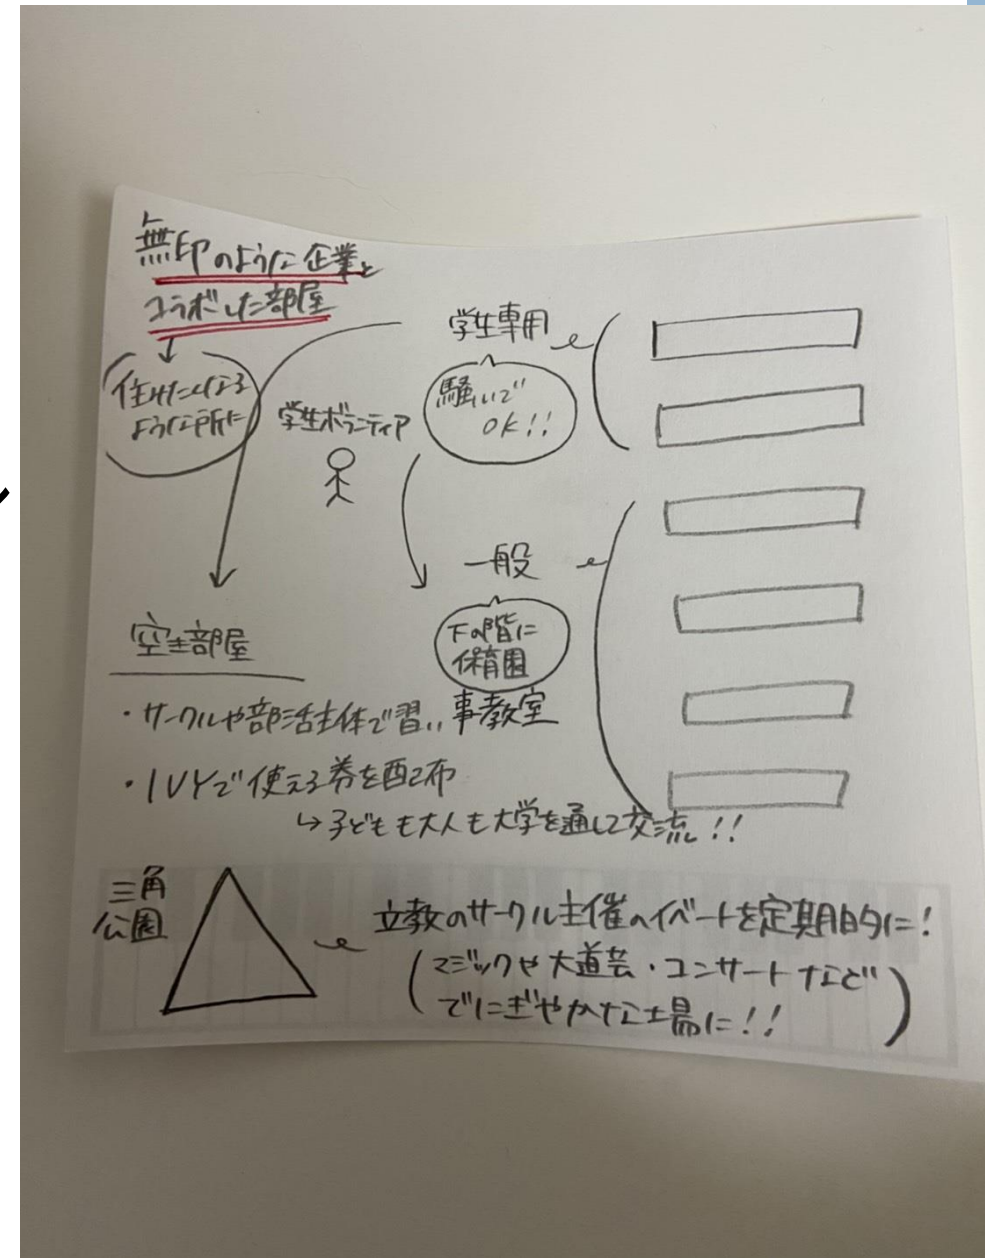 無印のように企業と
コラボした部屋
住みたくなる
ような所に
学生専用
騒いで
OK!!
学生ボランティア
一般
下の階に
保育園
空き部屋
・サークルや部活主体で習い事教室
・IVYで使える券を配布
↳子どもも大人も大学を通して交流!!
三角
公園
立教のサークル主催のイベントを定期的に!
(マジックや大道芸・コンサートなど
でにぎやかな場に!!)